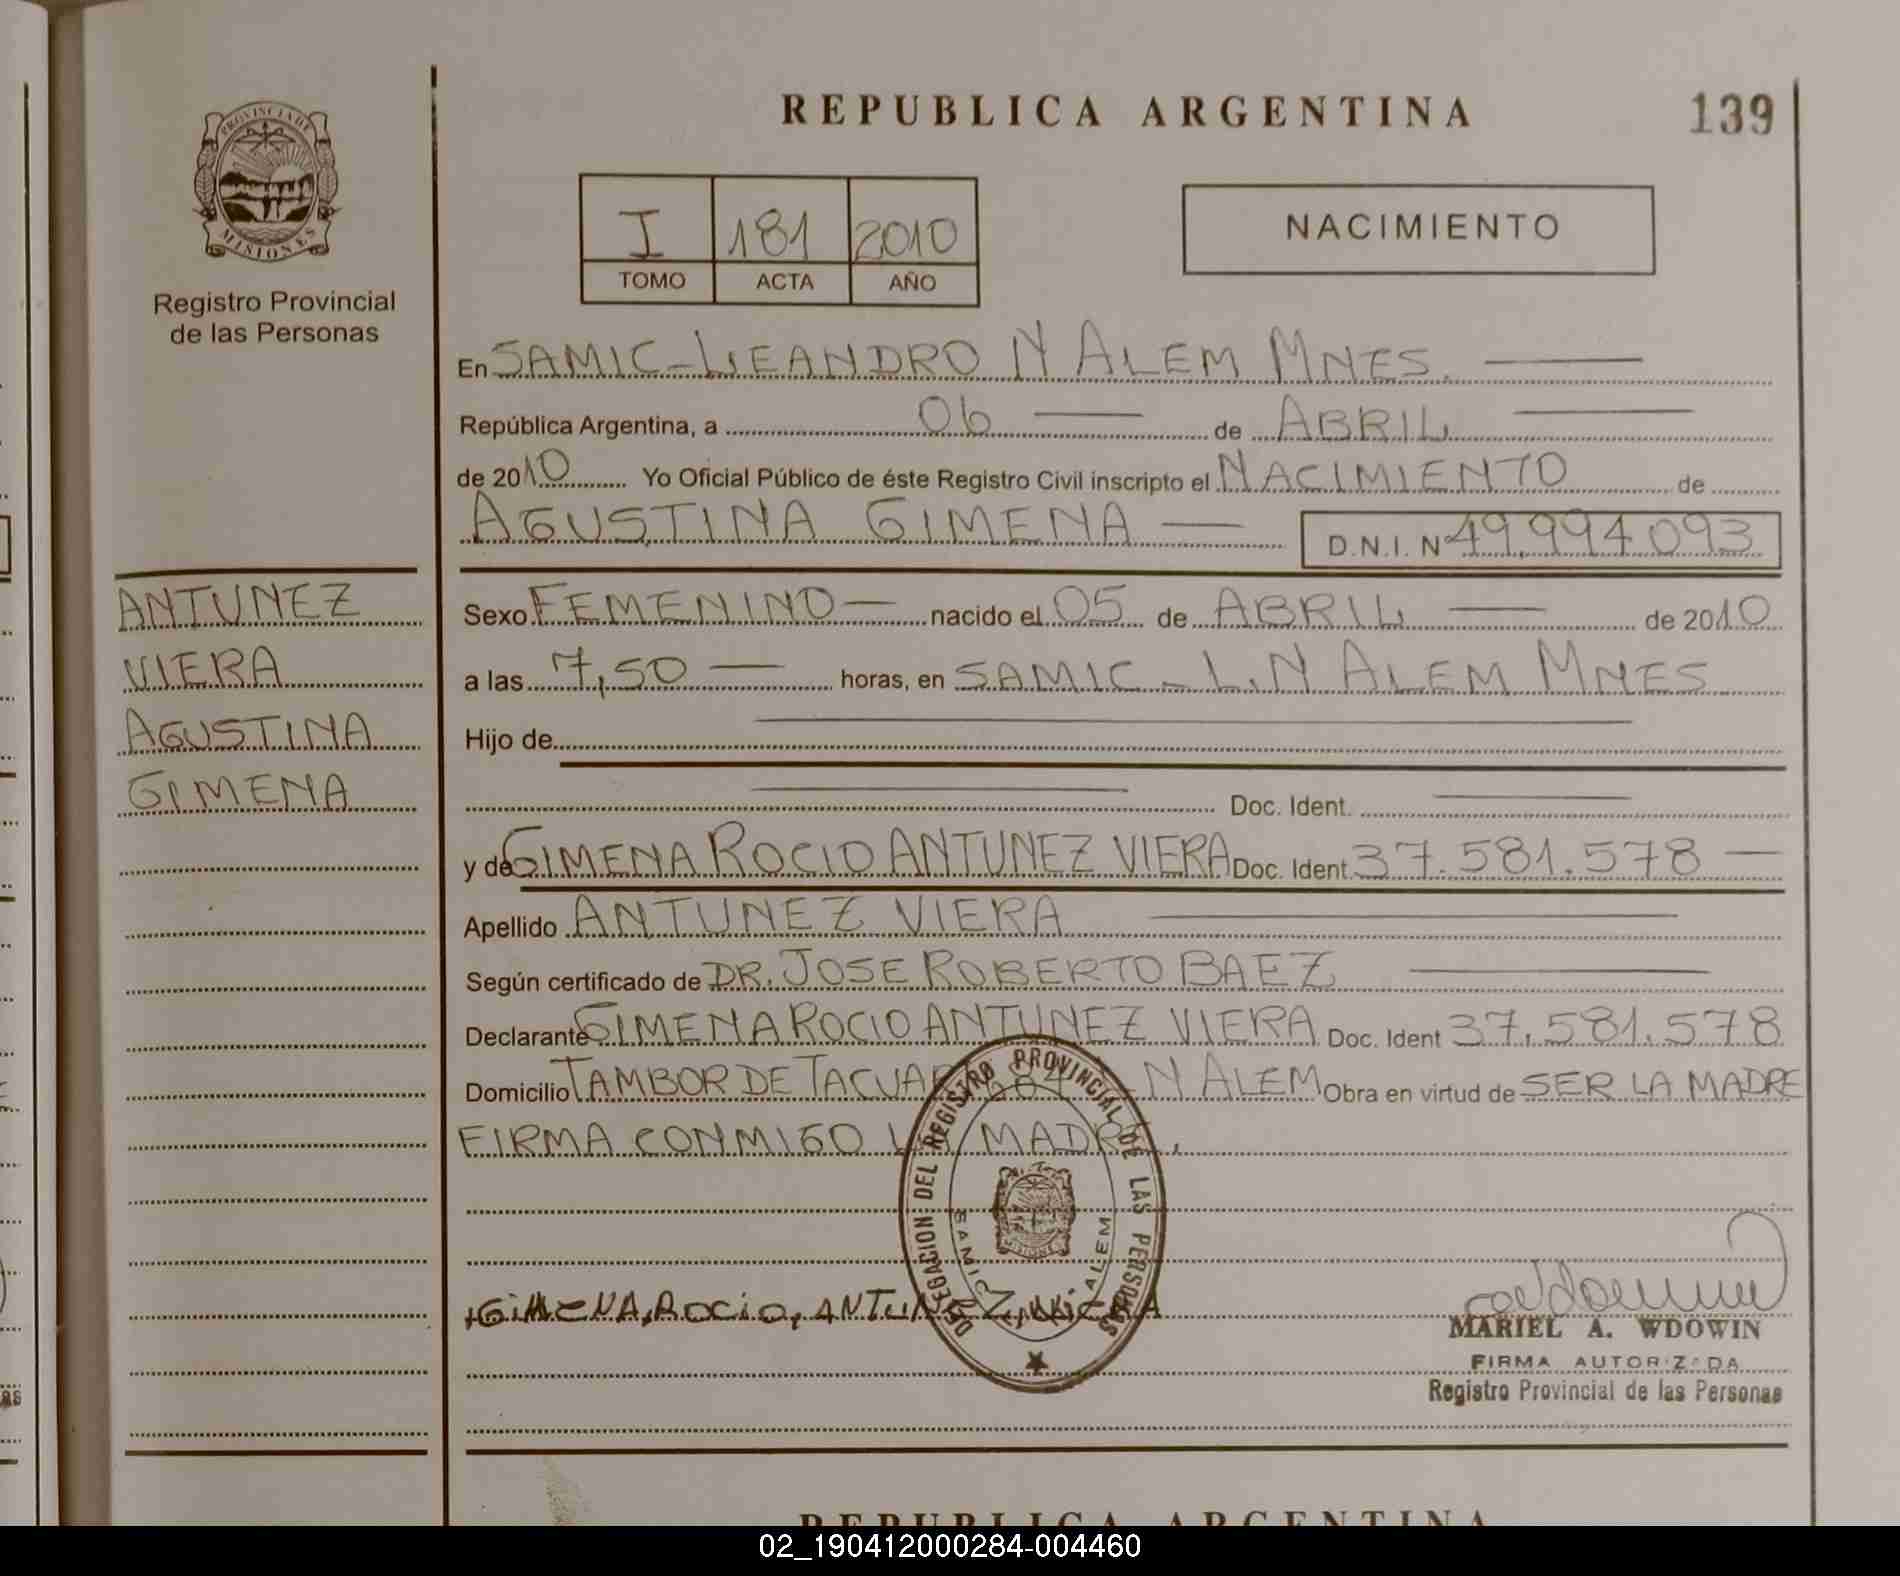 REPUBLICA ARGENTINA
139
PROVINCIA DE
MISIONES
Registro Provincial
de las Personas
I 181 2010
TOMO ACTA AÑO
NACIMIENTO
En SAMIC-LEANDRO N ALEM MNES.
República Argentina, a 06 de ABRIL
de 2010 Yo Oficial Público de éste Registro Civil inscripto el NACIMIENTO de
AGUSTINA GIMENA D.N.I. Nº 49.994.093
ANTUNEZ
VIERA
AGUSTINA
GIMENA
Sexo FEMENINO nacido el 05 de ABRIL de 2010
a las 7,50 horas, en SAMIC - L.N ALEM MNES
Hijo de
Doc. Ident.
y de GIMENA ROCIO ANTUNEZ VIERA Doc. Ident. 37.581.578
Apellido ANTUNEZ VIERA
Según certificado de DR. JOSE ROBERTO BAEZ
Declarante GIMENA ROCIO ANTUNEZ VIERA Doc. Ident 37.581.578
Domicilio TAMBOR DE N ALEM Obra en virtud de SER LA MADRE
FIRMA CONMIGO LA MADRE.
DELEGACION DEL REGISTRO PROVINCIAL DE LAS PERSONAS
SAMIC ALEM
GIMENA, ROCIO, ANTUNEZ, VIERA
MARIEL A. WDOWIN
FIRMA AUTORIZADA
Registro Provincial de las Personas
REPUBLICA ARGENTINA
02_190412000284-004460